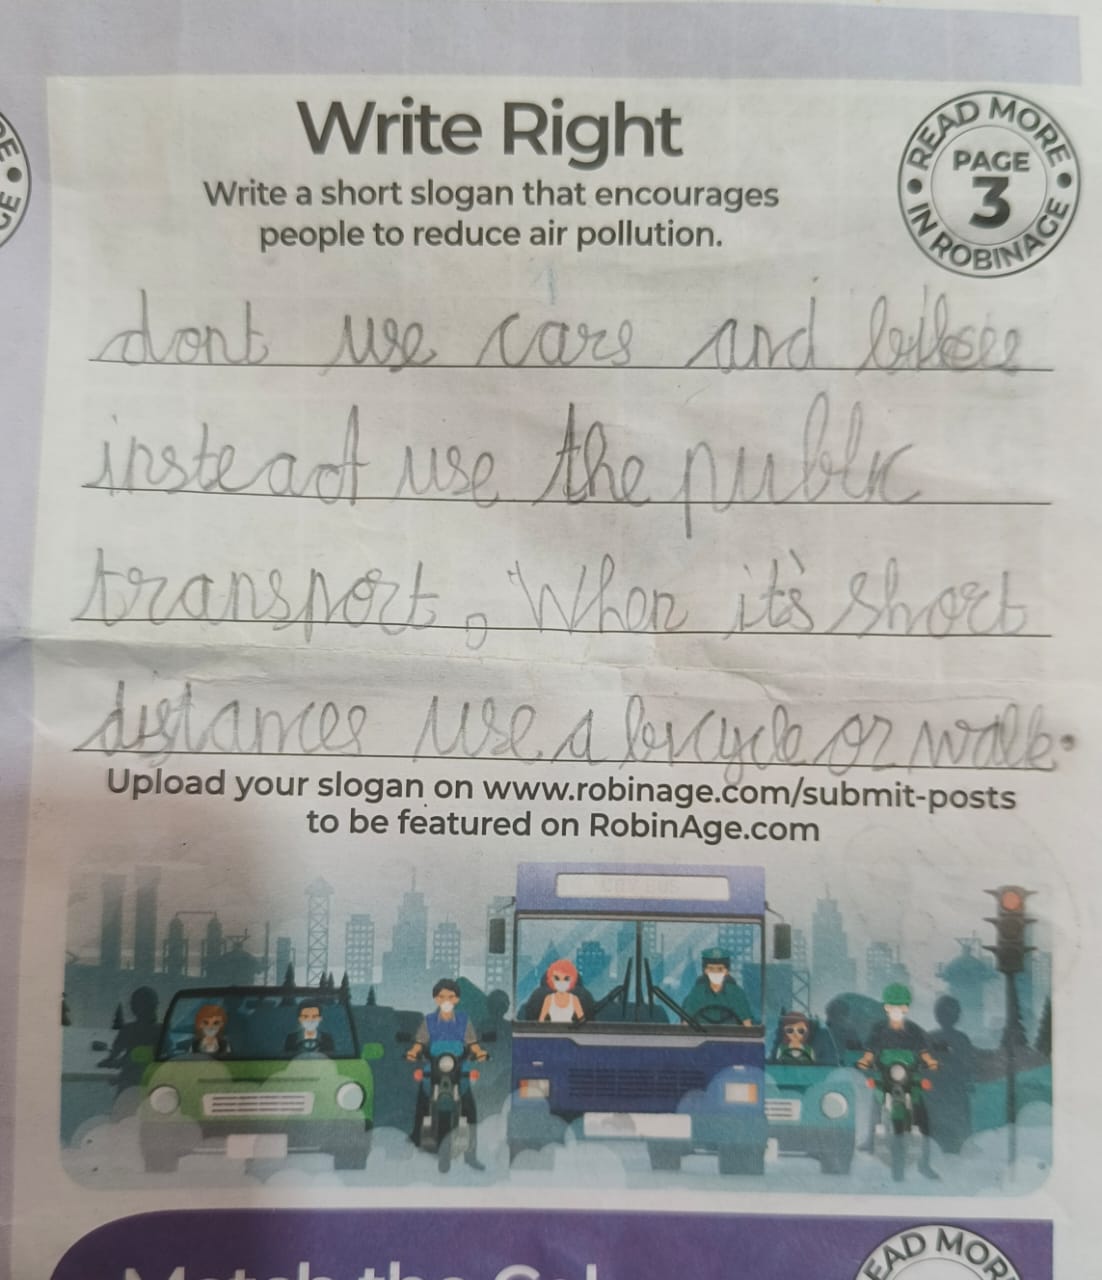 Write Right
Write a short slogan that encourages
people to reduce air pollution.
READ MORE
PAGE
3
IN ROBINAGE
dont use cars and
instead use the public
transport. When it's short
distances use a bicycle or walk.
Upload your slogan on www.robinage.com/submit-posts
to be featured on RobinAge.com
READ MORE